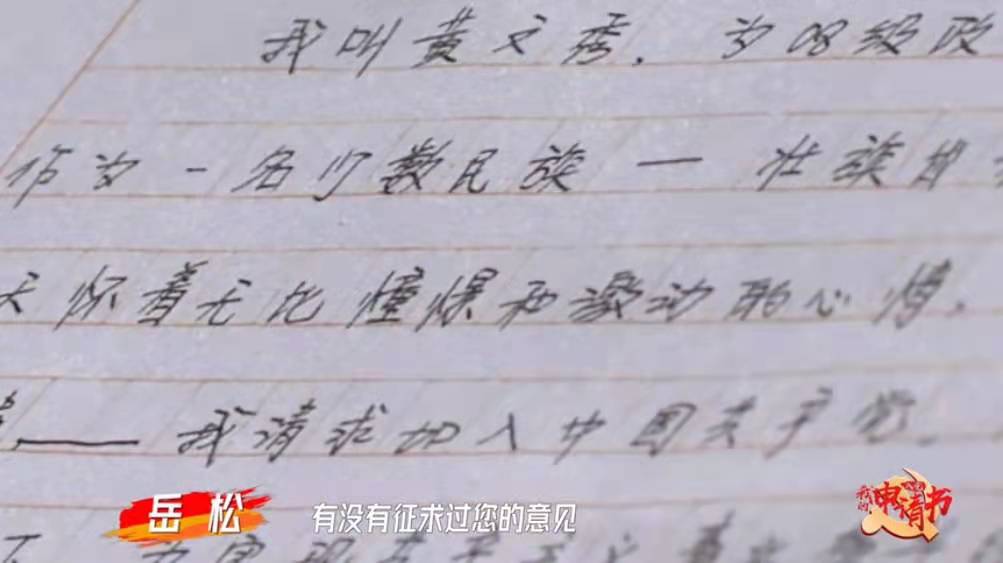 我叫黄文秀,为08级政
作为一名少数民族一壮族自
天怀着无比憧憬和激动的心情,
——我请求加入中国共产党。
岳松 有没有征求过您的意见
我的申请书